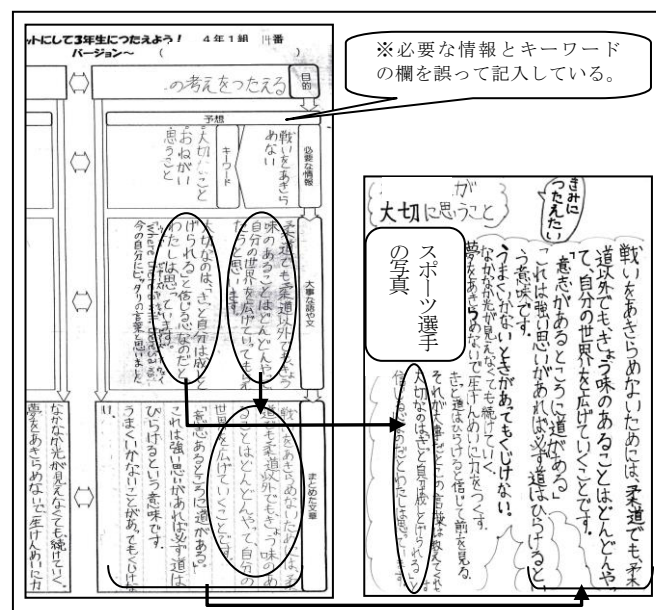 ットにして3年生につたえよう！　4年1組　14番
バージョン～　（　　　）
※必要な情報とキーワード
の欄を誤って記入している。
目的
の考えをつたえる
予想
必要な情報
戦いをあきら
めない
キーワード
大切なこと
おねがい
思うこと
大事な語や文
柔道でも柔道以外でもきょう
味のあることはどんどんやって
自分の世界を広げていってもらえ
たらと思います。
大切なのは、きっと自分は成しと
げられる」と信じる心なのだと
わたしは思っています。
今の自分にピッタリの言葉と思いました
まとめた文章
戦いをあきらめないためには、柔
道でも柔道以外でもきょう味のあ
ることはどんどんやって、自分の
世界を広げていくことです。
「意志あるところに道がある。」
これは強い思いがあれば必ず道は
ひらけるという意味です。
うまくいかないことがあってもくじけな
い。
なかなか光が見えなくても続けていく。
夢をあきらめないで生けんめいに力
きみに
つたえたい
が
大切に思うこと
スポーツ選手
の写真
戦いをあきらめないためには、柔道でも、柔
道以外でも、きょう味のあることはどんどんや
て、自分の世界を広げていくことです。
「意志があるところに道がある」
これは強い思いがあれば必ず道はひらけると、
う意味です。
うまくいかないときがあってもくじけない。
なかなか光が見えなくても続けていく。
夢をあきらめないで生けんめいに力をつくす。
きっと道はひらけると信じて前を見る。
それが大事だとこの言葉は教えてくれ
大切なのはきっと自分は成しとげられる」と
信じる心なのだとわたしは思っています。